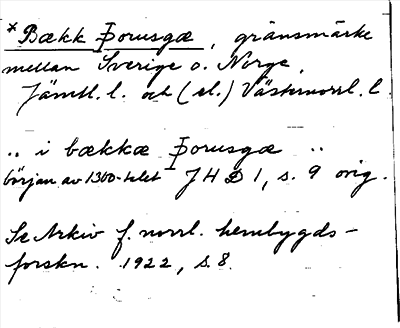 * Bækk Þorusgæ, gränsmärke
mellan Sverige o. Norge,
Jämtl. l. och (el.) Västernorrl. l.
.. i bækkæ Þorusgæ ..
början av 1300-talet JHD 1, s. 9 orig.
Se Arkiv f. norrl. hembygds-
forskn. 1922, s. 8.